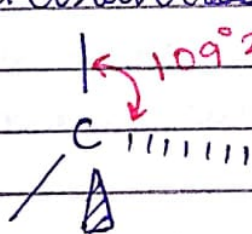 109°?
C